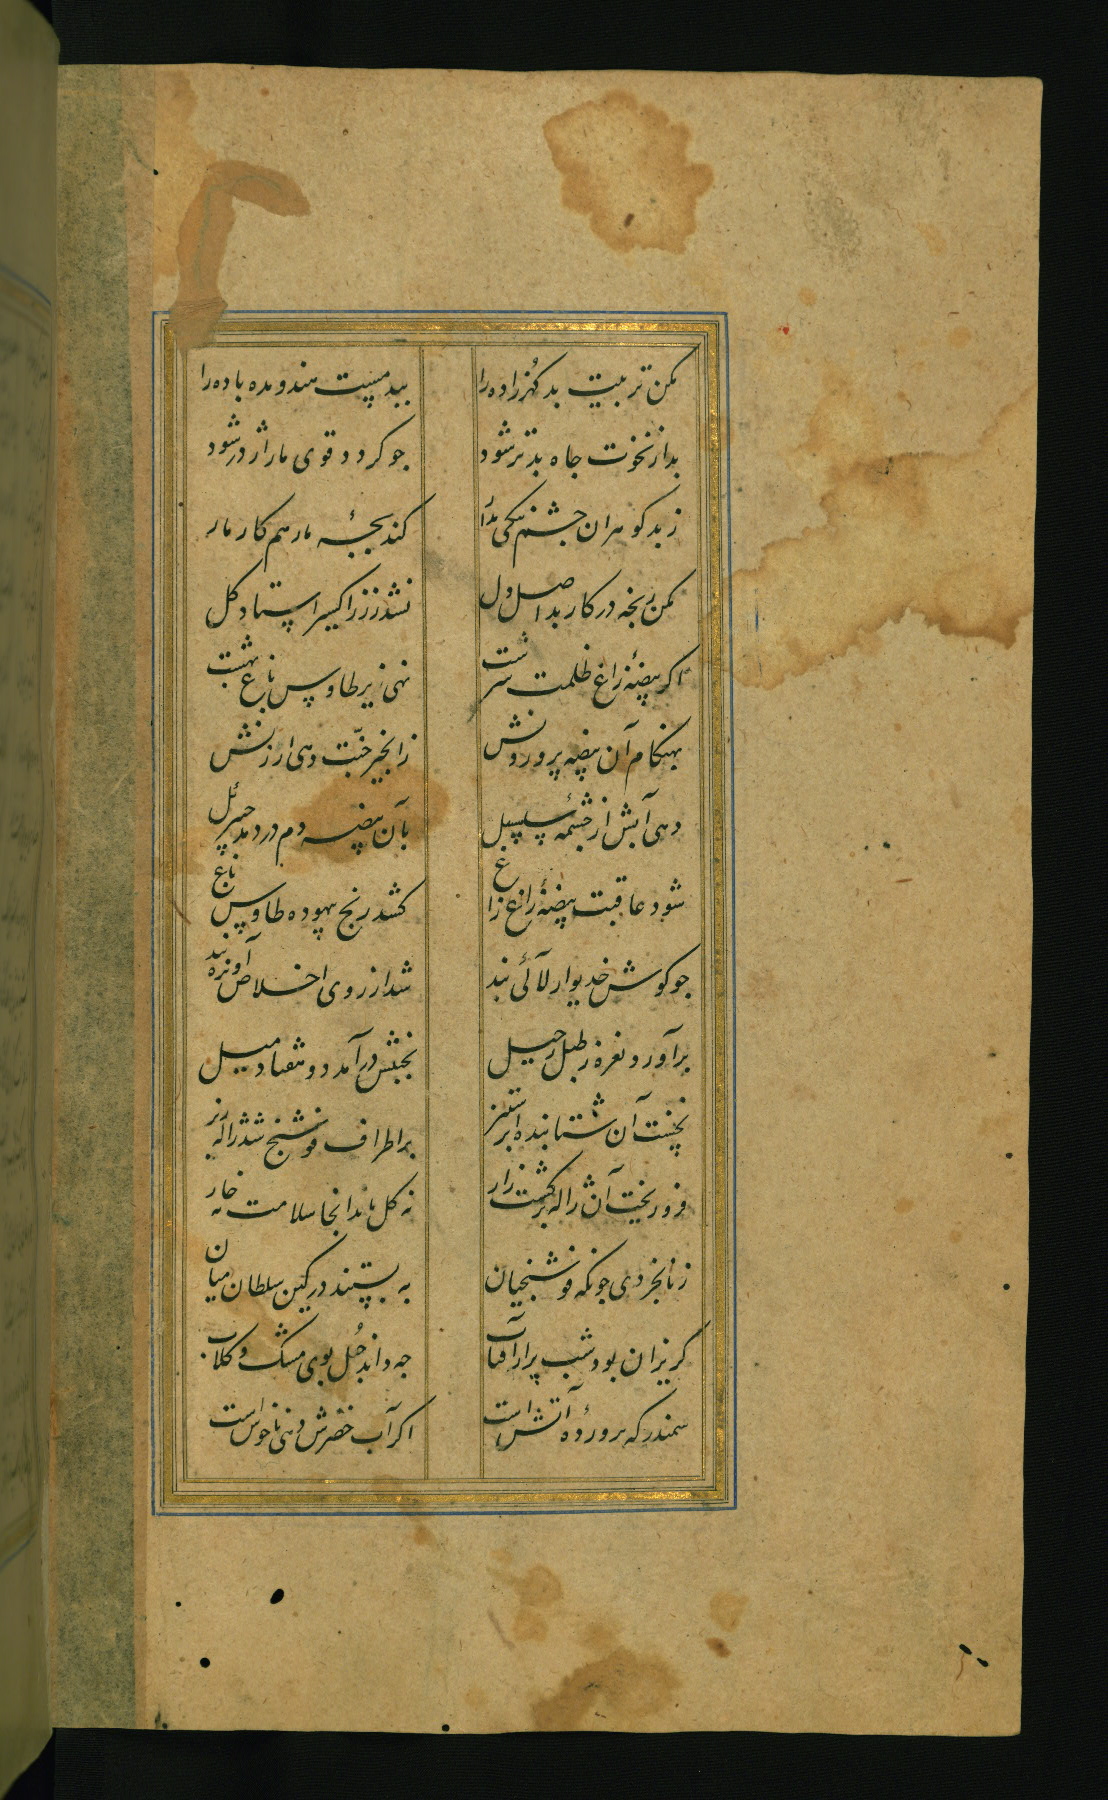 مکن تربیت بد کهر زاده را    ببد مست هندو مده باده را
بد از نخوت جاه بدتر شود    جو کردد قوی مار اژدر شود
ز بد کوهران جشم نیکی مدار    کند بجهٔ مار هم کار مار
مکن رنجه در کار بد اصل دل    نشد زر ز اکسیر استاد کل
اکر بیضهٔ زاغ ظلمت سرشت    نهی زیر طاوس باغ بهشت
بهنکام آن بیضه پروردنش    ز انجیر جنّت دهی ارزنش
دهی آبش از چشمهٔ سلسبیل    بآن بیضه دم در دمد جبرئیل
شود عاقبت بیضهٔ زاغ زاغ    کشد رنج بیهوده طاوس باغ
جو کوش خدیو از لآلئ بند    شد از روی اخلاص آویزه بند
برآورد نعره ز طبل رحیل    بجنبش درآمد دو هفتاد میل
نخست آن شتابنده ابر ستیز    بر اطراف فوشنج شد ژاله ریز
فرو ریخت آن ژاله بر کشت زار    نه کل ماند انجا سلامت نه خار
ز نابخردی جونکه فوشنجیان    ببستند در کین سلطان میان
کریزان بود شب پر از آفتاب    جه داند جُعل بوی مشک و کلاب
سمندر که پروردهٔ آتش است    اکر آب خضرش دهی ناخوش است